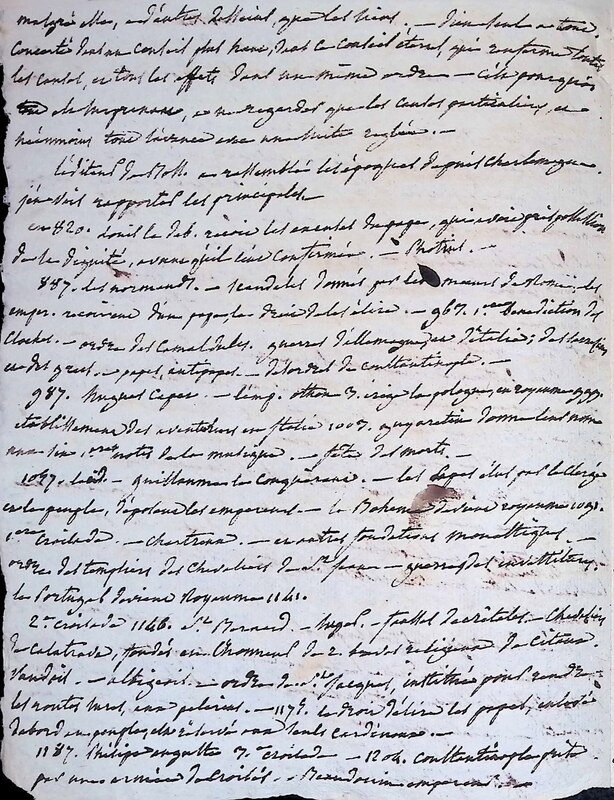 malgré elle, a d'autres desseins, que les siens. — Dieu seul a tout
concerté dans un conseil plus haut, dans ce conseil éternel, qui enferme toutes
les causes, et tous les effets dans un même ordre — c'est pourquoi
de surprenant, a ne regarder que les causes particulieres, et
neanmoins tout s'avance avec une suite reglée. —
L'éditeur de Boss. a rassemblé les époques depuis Charlemagne.
j'en vais rapporter les principales —
en 820. Louis le deb. recoit les du pape, qui avoit pris possession
de la dignité, avant qu'il eut été confirmé. — Photius. —
887. les normands. — scandales donnés par les moeurs de Rome, les
emper. recoivent d'un pape le droit de les élire. — 967. 1.ere benediction des
Cloches. — ordre des Camaldules. guerres d'allemagne, en d'italie; des Sarrasins
et des grecs. — papes, antipapes. — desordres de constantinople —
987. hugues capet. — l'emp. othon 3. erige la pologne, en royaume 999.
etablissement des aventuriers en Italie 1003. guy aretin donne leurs noms
aux six 1.eres notes de la musique. — fête des morts. —
1047. — guillaume le Conquérant. — les papes élus par le clergé
et le peuple, déposent les empereurs — la Boheme devient royaume
1.ere croisade. — chartreux. — et autres fondations monastiques. —
ordre des templiers des chevaliers de S.t jean — guerres des investitures.
le Portugal devient Royaume 1141.
2.e croisade 1146. S.t Bernard. — — fausses decrétales. — Chevaliers
de calatrava, fondés en l'honneur de 2. braves religieux de Citeaux
Vaudois. — albigeois. — ordre de S.t Jacques, institué pour rendre
les routes sures, aux pelerins. — 1179. le droit d'elire les papes, enlevé
d'abord au peuple, est réservé aux seuls cardinaux. —
1187. Philippe auguste 3.e croisade — 1204. constantinople prise
par une armée de croisés. — Beaudouin empereur. —